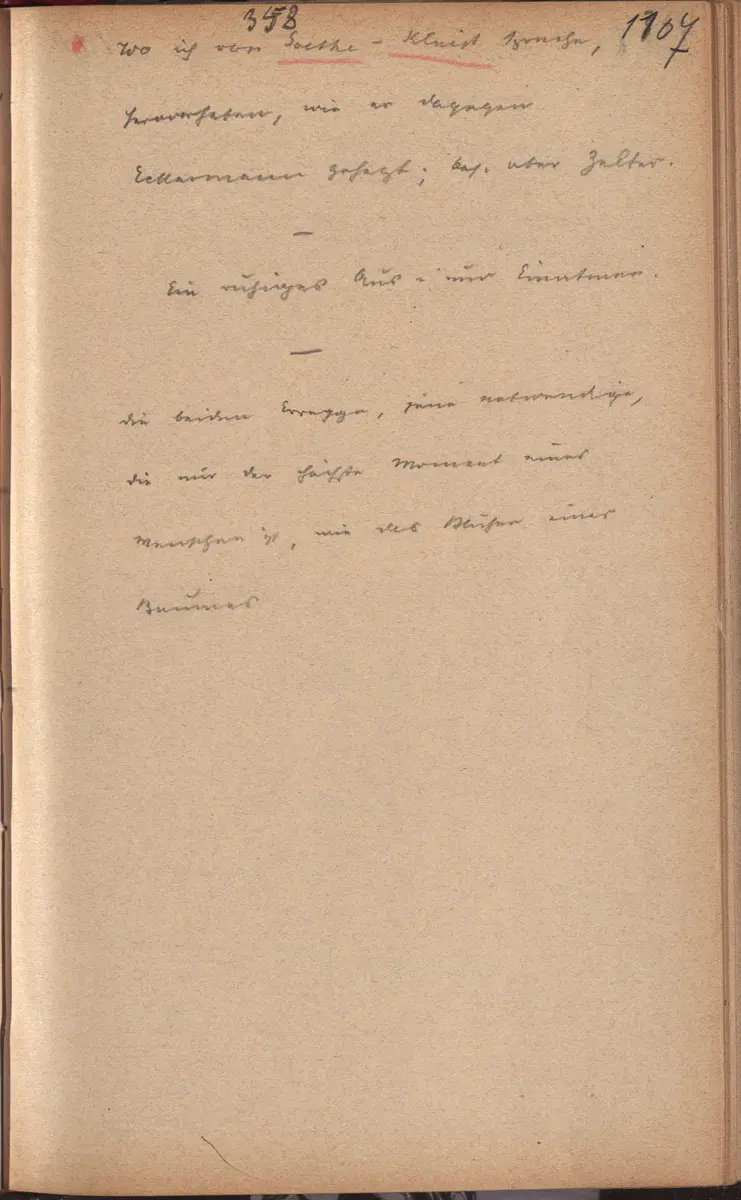 358
1107
Wo ich von Goethe – Kleist spreche,
hervorheben, wie er dagegen
Eckermann gehegt; bes. aber Zelter.
—
Ein ruhiges Aus- u. nur Einatmen.
—
die beiden, jene notwendige,
die nur der höchste Moment eines
Menschen ist, wie das Blühen eines
Baumes